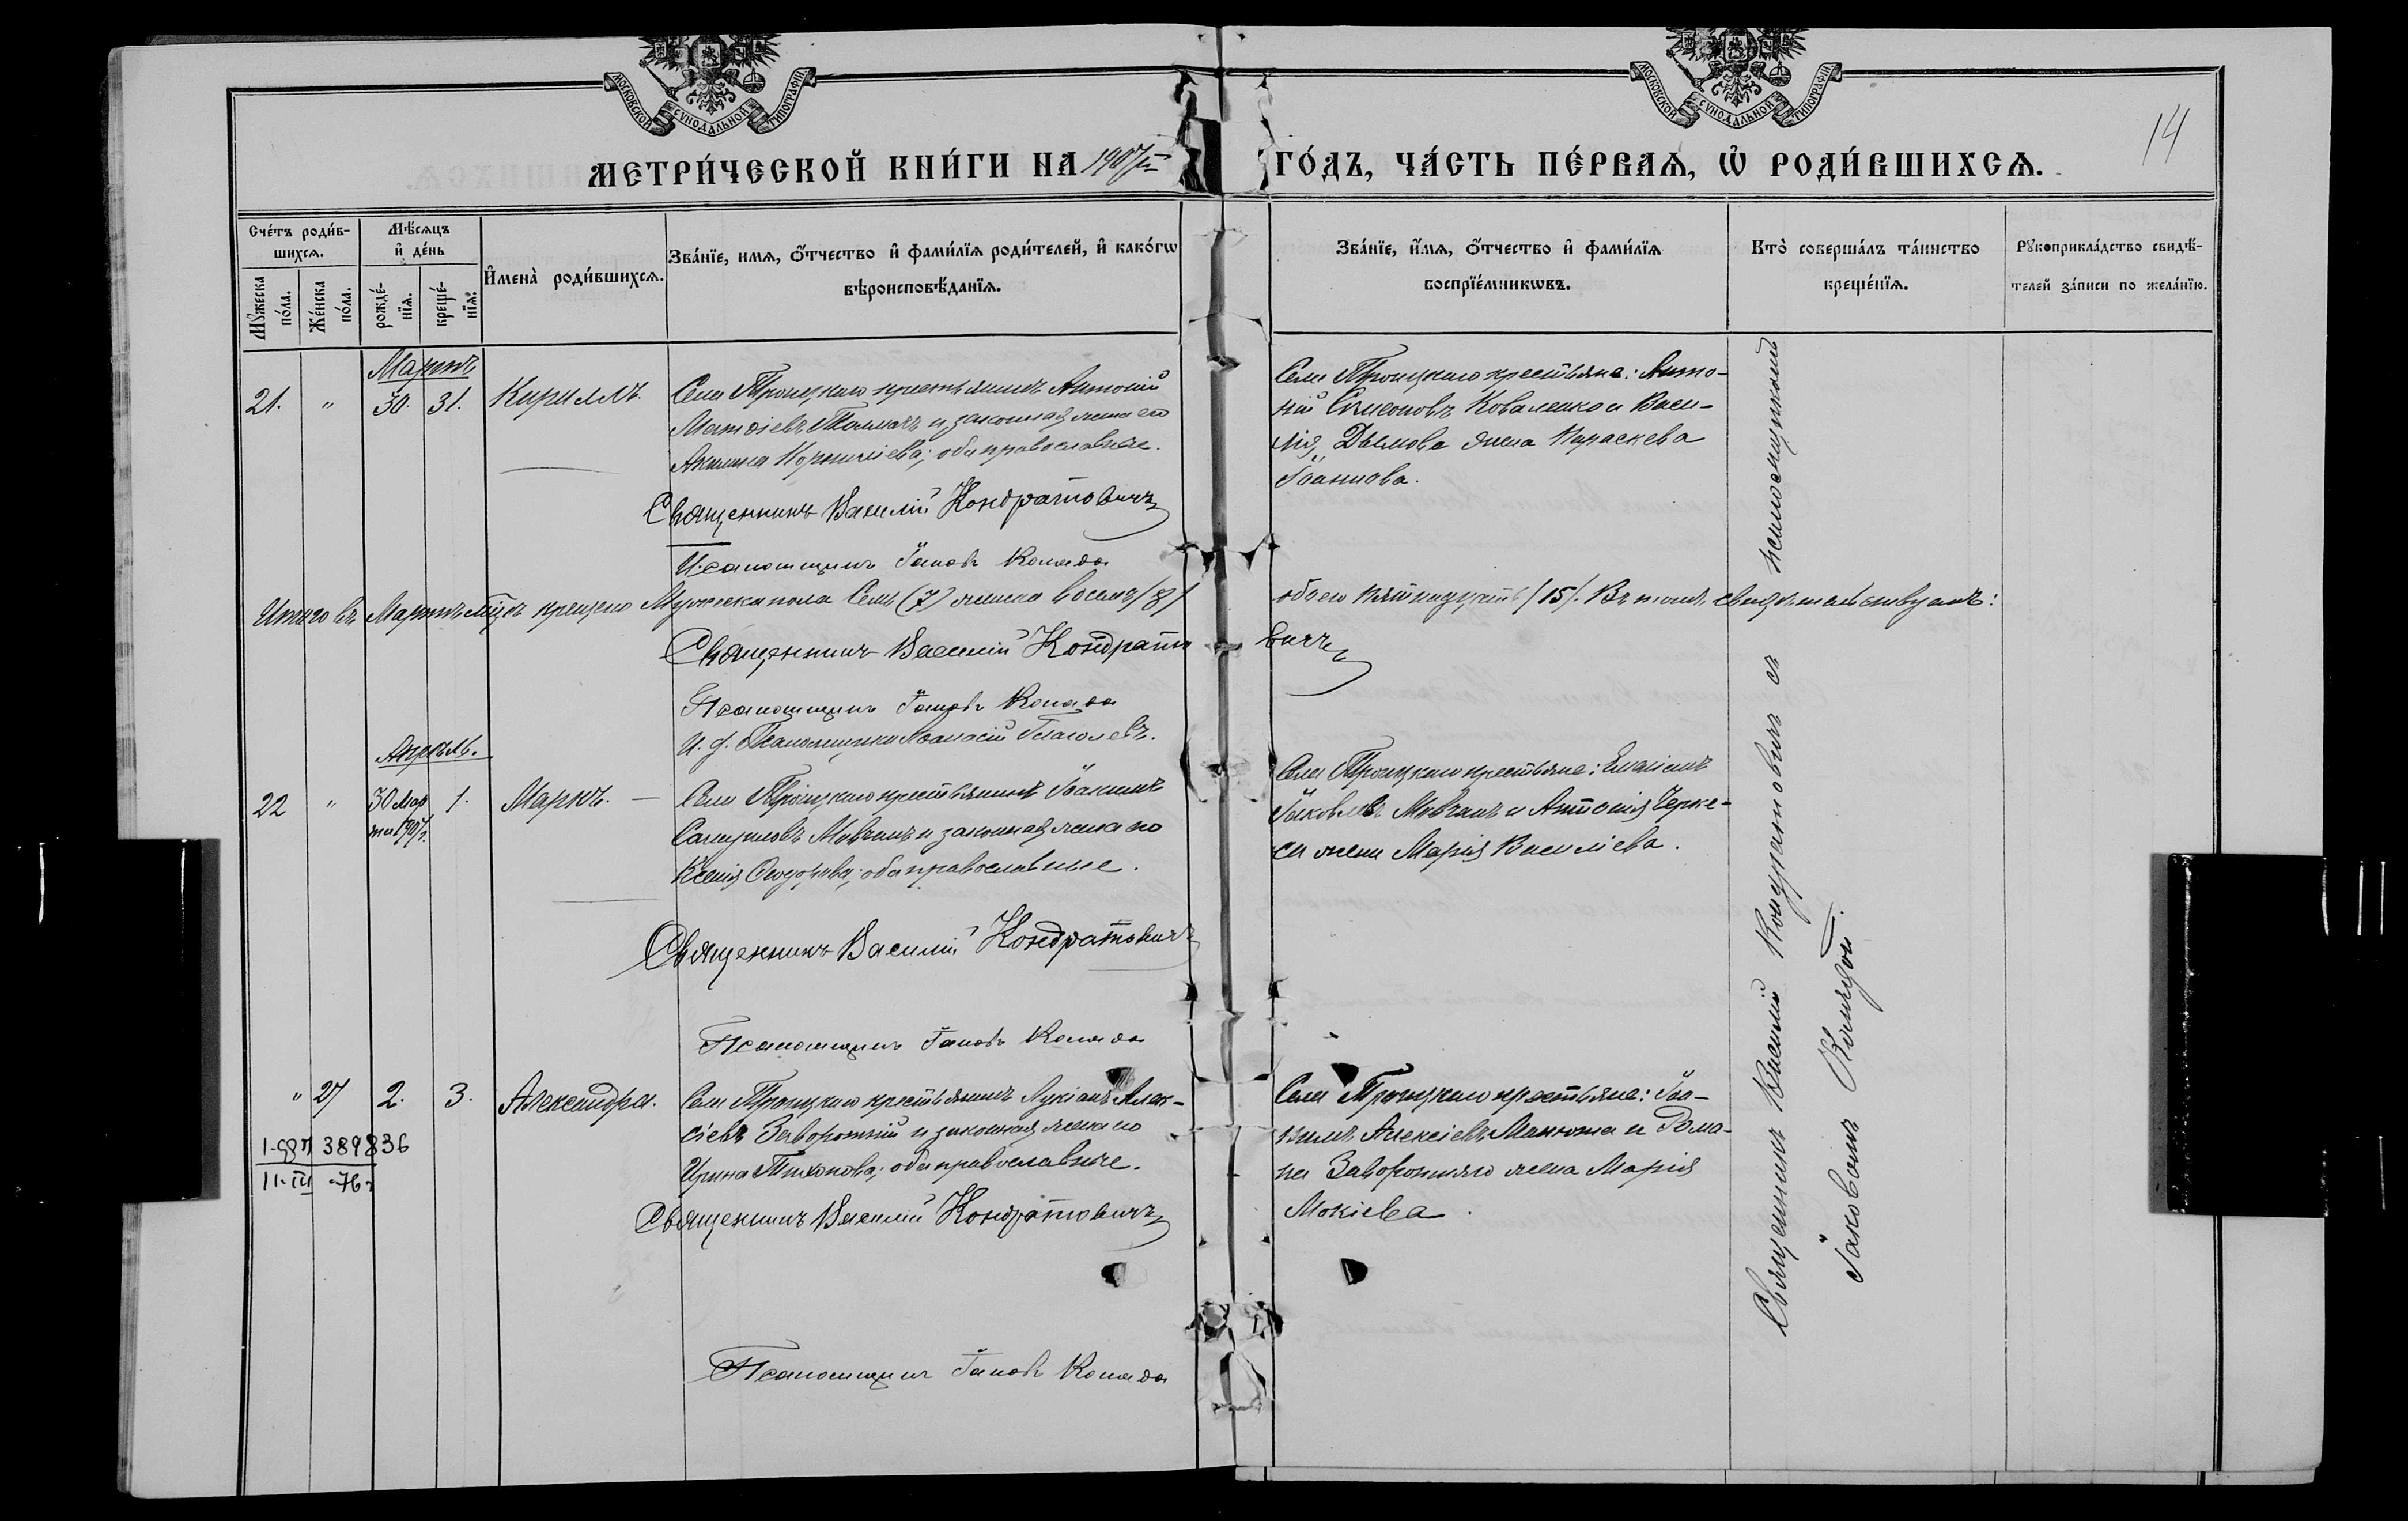 МОСКОВСКОЙ СѴНОДАЛЬНОЙ ТИПОГРАФІИ
МОСКОВСКОЙ СѴНОДАЛЬНОЙ ТИПОГРАФІИ
14
МЕТРИ́ЧЕСКОЙ КНИ́ГИ НА 1907й ГО́ДЪ, ЧА́СТЬ ПЕ́РВАѦ, Ѡ҆ РОДИ́ВШИХСѦ.
Счéтъ роди́в-
шихсѧ.
Мꙋ́жеска
по́ла.
Же́нска
по́ла.
Мѣ́сѧцъ
и҆ де́нь
рожде́-
нїѧ.
креще́-
нїѧ.
И҆мена̀ роди́вшихсѧ.
Зва́нїе, имѧ, ѻ҆́тчество и҆ фами́лїѧ роди́телей, и҆ како́гѡ
вѣроисповѣ́данїѧ.
Зва́нїе, и҆́мѧ, ѻ҆́тчество и҆ фами́лїѧ
воспрїе́мникѡвъ.
Кто̀ соверша́лъ та́инство
креще́нїѧ.
Рꙋкоприкла́дство свидѣ́-
телей за́писи по жела́нїю.
Мартъ
21. " 30. 31. Кириллъ.
Села Троицкаго крестьянинъ Антоній
Матѳіевъ и законная жена его
Акилина Корниліева; оба православные.
Священникъ Василій Кондратовичъ
Псаломщикъ Іаковъ
Села Троицкаго крестьяне: Анто-
ній Симеоновъ Коваленко и Васи-
лія Дымова жена Параскева
Іоаннова.
Итого въ Мартѣ мѣсяцѣ крещено Мужеска пола Семь (7) женска восемь (8) обоего пятнадцать (15). Въ томъ свидѣтельствуютъ:
Священникъ Василій Кондратовичъ
Псаломщикъ Іаковъ
И. д. Псаломщика Аѳанасій
Апрѣль.
22 " 30 Мар
та 1907г. 1. Маркъ.
Села Троицкаго крестьянинъ Іоакимъ
Самуиловъ Мовчанъ и законная жена его
Ксенія Ѳеодорова; оба православные.
Священникъ Василій Кондратовичъ
Псаломщикъ Іаковъ
Села Троицкаго крестьяне: Емиліанъ
Іаковлевъ Мовчанъ и Антонія Черке-
са жена Марія Василіева.
" 27 2. 3. Александра.
I-
389836
11-III -76г
Села Троицкаго крестьянинъ Лукіанъ Алек-
сіевъ Заворотній и законная жена его
Ирина Тихонова; оба православные.
Священникъ Василій Кондратовичъ
Псаломщикъ Іаковъ
Села Троицкаго крестьяне: Іоа-
кимъ Алексіевъ Манюта и Рома-
на Заворотняго жена Марія
Мокіева.
Священникъ Василій Кондратовичъ съ псаломщикомъ
Іаковомъ